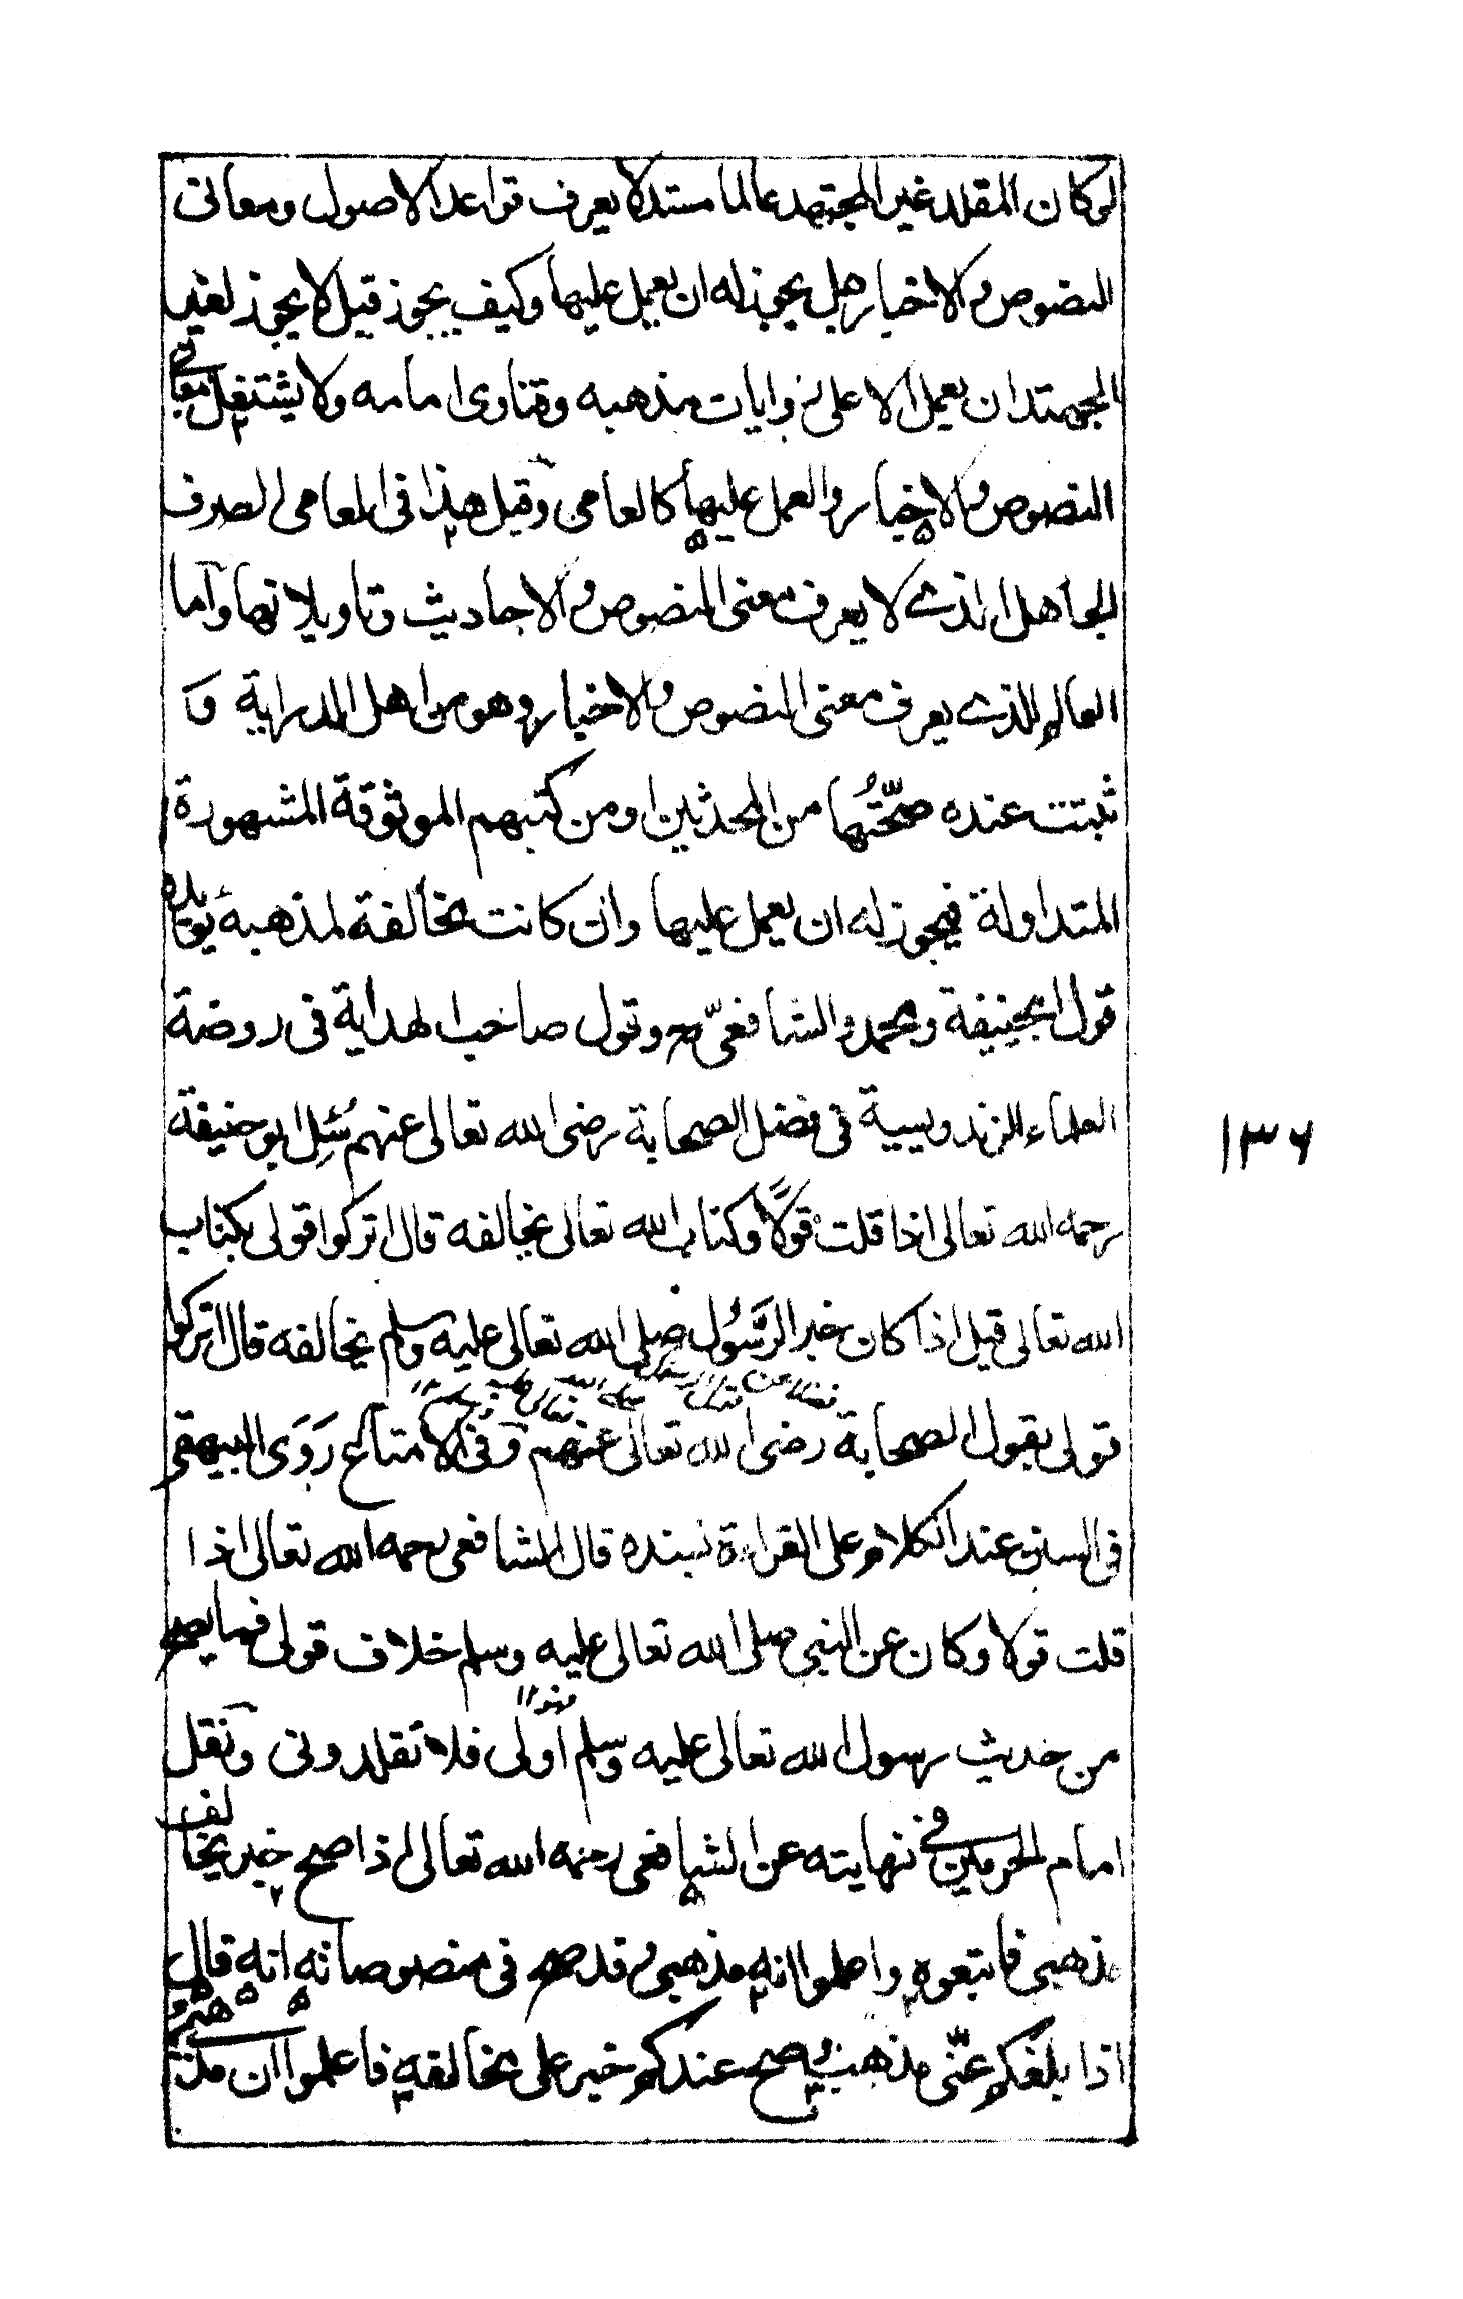 لو كان المقلد غير المجتهد عالما مستدلا يعرف قواعد الاصول ومعانى
النصوص والاخبار هل يجوز له ان يعمل عليها وكيف يجوز قيل لا يجوز لغير
المجتهد ان يعمل الا على روايات مذهبه وفتاوى امامه ولا يشتغل بمعانى
النصوص والاخبار والعمل عليها كالعامى وقيل هذا فى العامى الصرف
الجاهل الذى لا يعرف معنى النصوص والاحاديث وتاويلاتها واما
العالم الذى يعرف معنى النصوص والاخبار وهو من اهل الدراية و
ثبتت عنده صحّتُها من المحدثين او من كتبهم الموثوقة المشهورة
المتداولة فيجوز له ان يعمل عليها وان كانت مخالفة لمذهبه يؤيده
قول ابيحنيفة ومحمد والشافعىّ رح وقول صاحب الهداية فى روضة
العلماء الزندويسية فى فضل الصحابة رضى الله تعالى عنهم سُئِل ابو حنيفة
رحمه الله تعالى اذا قلت قولًا وكتاب الله تعالى يخالفه قال اتركوا قولى بكتاب
الله تعالى قيل اذا كان خبر الرَّسُول صلى الله تعالى عليه وسلم يخالفه قال اتركوا
قولى بقول الصحابة رضى الله تعالى عنهم وفى الامتاع رَوَى البيهقى
فى السنن عند الكلام على القراءة بسنده قال الشافعى رحمه الله تعالى اذا
قلت قولا وكان عن النبى صلى الله تعالى عليه وسلم خلاف قولى فما يصح
من حديث رسول الله تعالى عليه وسلم اولى فلا تقلدونى ونقل
امام الحرمين فى نهايته عن الشافعى رحمه الله تعالى اذا صح خبر يخالف
مذهبى فاتبعوه واعلموا انه مذهبى وقد صح فى منصوصاته انه قال
اذا بلغكم عنّى مذهب وصح عندكم خبر على مخالفته فاعلموا ان مذهبى
١٣٦